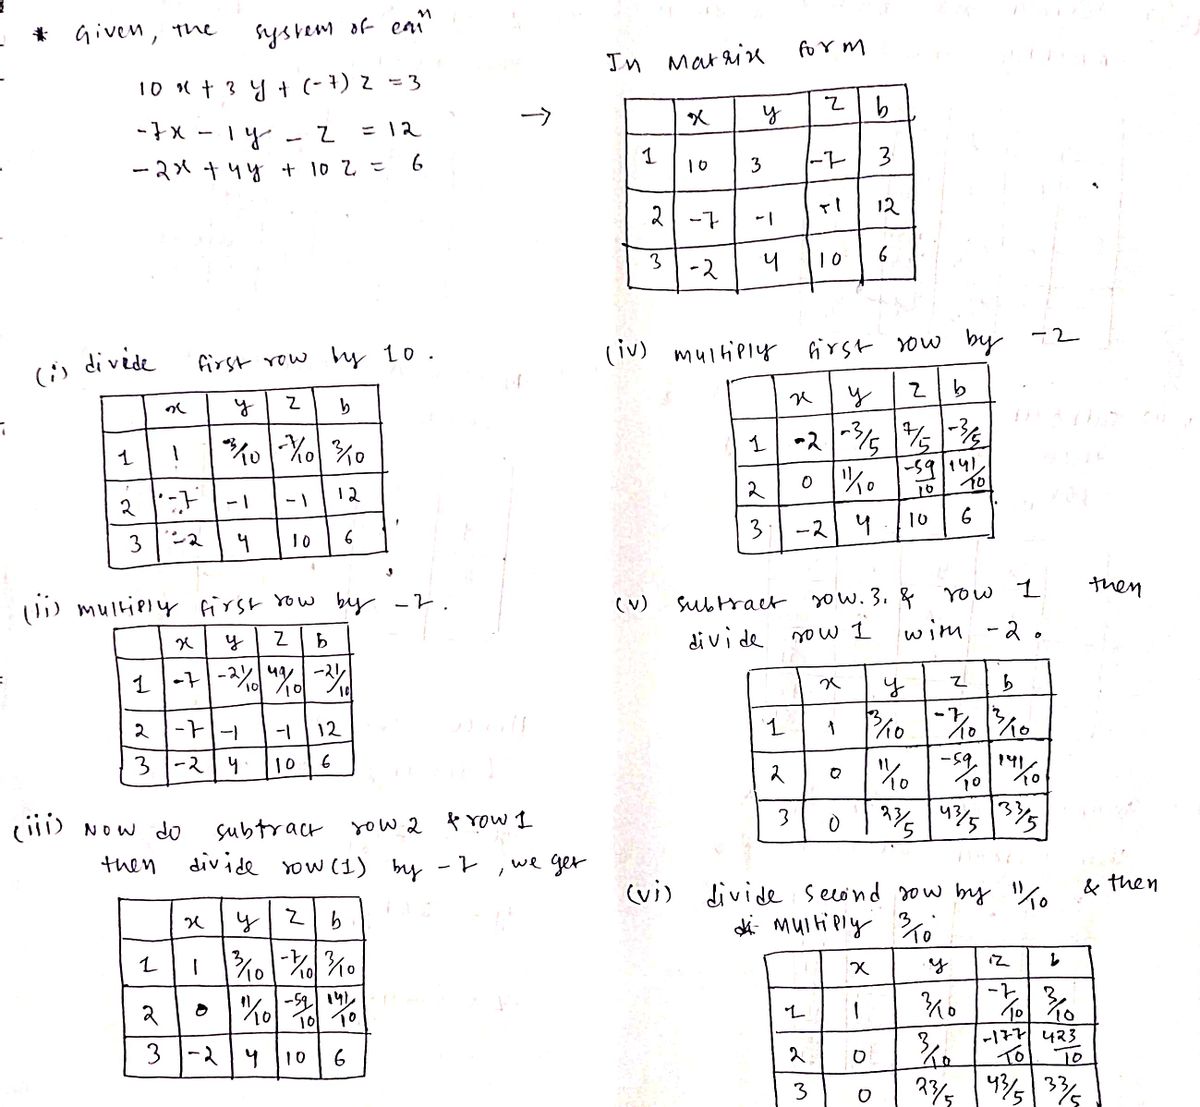 * Given, the system of eqnⁿ
10x + 3y + (-7)z = 3
-7x - 1y - z = 12
-2x + 4y + 10z = 6
→
In Matrix form
x y z b
1 10 3 -7 3
2 -7 -1 -1 12
3 -2 4 10 6
(i) divide first row by 10.
x y z b
1 1 3/10 -7/10 3/10
2 -7 -1 -1 12
3 -2 4 10 6
(ii) multiply first row by -7.
x y z b
1 -7 -21/10 49/10 -21/10
2 -7 -1 -1 12
3 -2 4 10 6
(iii) Now do subtract row 2 & row 1
then divide row (1) by -7, we get
x y z b
1 1 3/10 -7/10 3/10
2 0 11/10 -59/10 141/10
3 -2 4 10 6
(iv) multiply first row by -2
x y z b
1 -2 -3/5 7/5 -3/5
2 0 11/10 -59/10 141/10
3 -2 4 10 6
(v) subtract row.3. & row 1 then
divide row 1 with -2.
x y z b
1 1 3/10 -7/10 3/10
2 0 11/10 -59/10 141/10
3 0 23/5 43/5 33/5
(vi) divide second row by 11/10 & then
multiply 3/10
x y z b
1 1 3/10 -7/10 3/10
2 0 3/10 -177/10 423/10
3 0 23/5 43/5 33/5